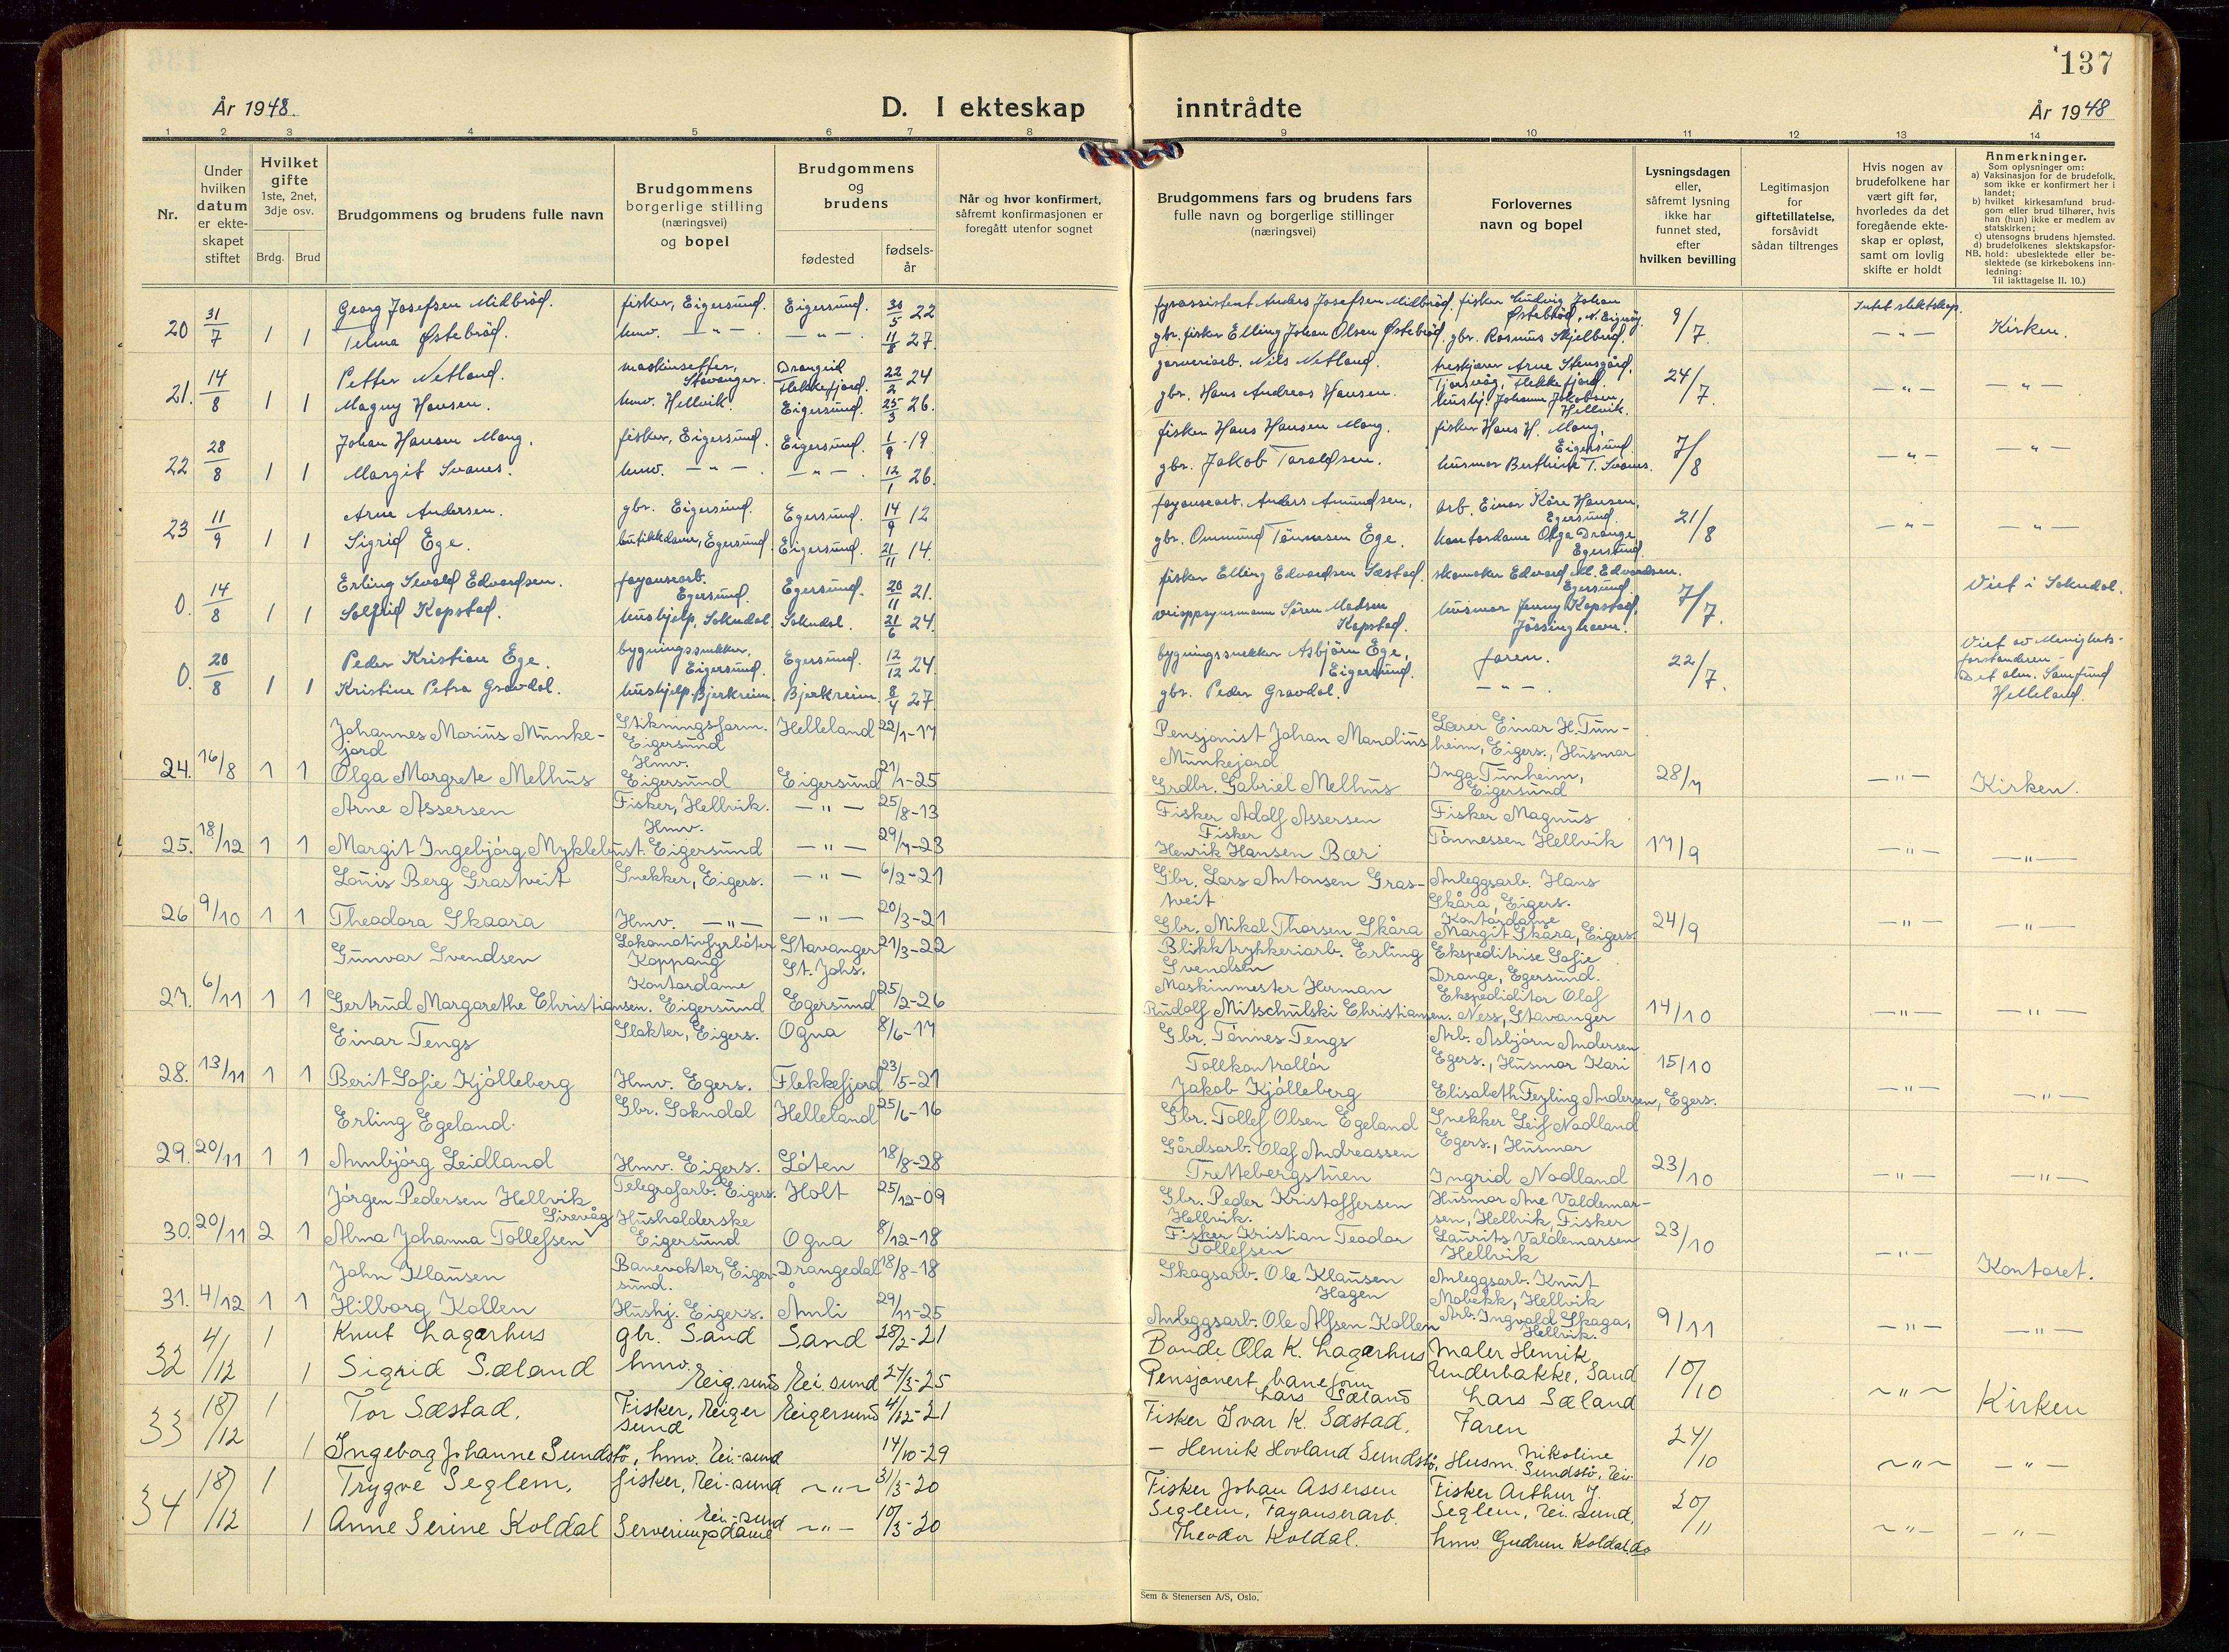 137
År 1948.
D. I ekteskap inntrådte
År 1948
1 2 3 4 5 6 7 8 9 10 11 12 13 14
Nr.
Under hvilken datum er ekteskapet stiftet
Hvilket gifte 1ste, 2net, 3dje osv.
Brdg. Brud
Brudgommens og brudens fulle navn
Brudgommens borgerlige stilling (næringsvei) og bopel
Brudgommens og brudens
fødested
fødsels-år
Når og hvor konfirmert, såfremt konfirmasjonen er foregått utenfor sognet
Brudgommens fars og brudens fars fulle navn og borgerlige stillinger (næringsvei)
Forlovernes navn og bopel
Lysningsdagen eller, såfremt lysning ikke har funnet sted, efter hvilken bevilling
Legitimasjon for giftetillatelse, forsåvidt sådan tiltrenges
Hvis nogen av brudefolkene har vært gift før, hvorledes da det foregående ekteskap er opløst, samt om lovlig skifte er holdt
Anmerkninger.
Som oplysninger om:
a) Vaksinasjon for de brudefolk, som ikke er konfirmert her i landet;
b) hvilket kirkesamfund brudgom eller brud tilhører, hvis han (hun) ikke er medlem av statskirken;
c) utensogns brudens hjemsted.
d) brudefolkenes slektskapsforhold: ubeslektede eller beslektede (se kirkebokens innledning:
NB. Til iakttagelse II. 10.)
20 31/7 1 1 Georg Josefsen Midbrød. fisker, Eigersund. Eigersund. 30/5 22 fyrassistent Anders Josefsen Midbrød, fisker Ludvig Johan Østebrød, N. Eigerøy. 9/7. Intet slektskap.
Telma Østebrød. hmv. — " — . — " — . 11/8 27. gbr. fisker Elling Johan Olsen Østebrød, gbr. Rasmus Skjelbred. — " — Kirken.
21. 14/8 1 1 Petter Netland. maskinsetter, Stavanger. Drangeid Flekkefjord. 22/2 24 garveriarb. Nils Netland. treskjærer Arne Stensgård, Tjorsvåg, Flekkefjord. 24/7.
Magny Hansen. hmv. Hellvik. Eigersund. 25/3 26. gbr. Hans Andreas Hansen. hushj. Johanne Jakobsen, Hellvik. — " — — " —
22 28/8 1 1 Johan Hansen Mong. fisker, Eigersund. Eigersund. 1/9 - 19 fisker Hans Hansen Mong. fisker Hans H. Mong, Eigersund. 7/8
Margit Svanes. hmv. — " — . — " — 12/1 26. gbr. Jakob Taraldsen. husmor Berthine T. Svanes. — " — — " —
23 11/9 1 1 Arne Andersen. gbr. Eigersund. Egersund. 14/9 12 fayansearb. Anders Amundsen, arb. Einar Kåre Hansen, Egersund. 21/8
Sigrid Ege. butikkdame, Egersund. Eigersund. 21/11 14. gbr. Ommund Tønnesen Ege. kontordame Olga Drange Egersund. — " — — " —
0. 14/8 1 1 Erling Sevald Edvardsen. fayansearb. Egersund. Egersund. 20/11 21. fisker Elling Edvardsen Sæstad. skomaker Edvard M. Edvardsen. Egersund. 7/7. Viet i Sokndal.
Solfrid Kopstad. hushjelp, Sokndal. Sokndal. 21/6 24. Søren Madsen Kopstad. husmor Jenny Kopstad, Jøssinghavn.
0. 20/8 1 1 Peder Kristian Ege. bygningssnekker, Eigersund. Egersund. 12/12 24 bygningssnekker Asbjørn Ege, Eigersund. faren. 22/7. Viet av Menighets-forstanderen - Det alm. Samfund Helleland.
Kristine Petra Gravdal. hushjelp, Bjerkreim. Bjerkreim. 8/4 27. gbr. Peder Gravdal. — " — .
24. 16/8 1 1 Johannes Marius Munkejord Stikningsform. Eigersund Helleland 22/1-17 Pensjonist Johan Mandius Munkejord Lærer Einar H. Tunheim, Eigers., Husmor Inga Tunheim, Eigersund 28/7 — " — Kirken.
Olga Margrete Melhus Hmv. Eigersund Eigersund 21/1-25 Grdbr. Gabriel Melhus
25. 18/12 1 1 Arne Assersen Fisker, Hellvik. — " — 25/8-13 Fisker Adolf Assersen Fisker Magnus Tønnessen Hellvik 17/9 — " — — " —
Margit Ingebjørg Myklebust. Hmv. Eigersund — " — 29/7-23 Fisker Henrik Hansen Bær
26 9/10 1 1 Louis Berg Grastveit Snekker, Eigers. — " — 6/2-21 Gbr. Lars Antonsen Grastveit Anleggsarb. Hans Skåra, Eigers. 24/9 — " — — " —
Theodora Skaara Hmv. — " — — " — 20/3-21 Gbr. Mikal Thorsen Skåra Kontordame Margit Skåra, Eigers.
27. 6/11 1 1 Gunvar Svendsen Lokomotivfyrbøter Koppang Stavanger St. Johs. 21/3-22 Blikktrykkeriarb. Erling Svendsen Ekspeditrise Sofie Drange, Egersund. 14/10 — " — — " —
Gertrud Margarethe Christiansen. Kontordame Eigersund Egersund 25/2-26 Maskinmester Herman Rudolf Mitschulski Christiansen. Ekspediditor Olaf Ness, Stavanger
28. 13/11 1 1 Einar Tengs Slakter, Eigers. Ogna 8/6-17 Gbr. Tønnes Tengs Arb. Asbjørn Andersen Egers., Husmor Kari 15/10 — " — — " —
Berit Sofie Kjølleberg Hmv. Egers. Flekkefjord 23/5-21 Tollkontrollør Jakob Kjølleberg Elisabeth Feyling Andersen, Egers.
29. 20/11 1 1 Erling Egeland. Gbr. Sokndal Helleland 25/6-16 Gbr. Tollef Olsen Egeland Snekker Leif Nodland Egers., Husmor 23/10 — " — — " —
Annbjørg Leidland Hmv. Eigers. Løten 18/8-28 Gårdsarb. Olaf Andreassen Trettebergstuen Ingrid Nodland
30. 20/11 2 1 Jørgen Pedersen Hellvik Telegrafarb. Eigers. Holt 25/12-09 Gbr. Peder Kristoffersen Hellvik. Husmor Ane Valdemarsen, Hellvik, Fisker 23/10 — " — Kontoret.
Alma Johanna Tollefsen Sirevåg Husholderske Eigersund Ogna 8/12-18 Fisker Kristian Teodor Tollefsen Laurits Valdemarsen Hellvik
31. 4/12 1 1 John Klausen Banevokter, Eigersund. Drangedal 18/8-18 Skogsarb. Ole Klausen Hagen Anleggsarb. Knut Mobekk, Hellvik 9/11 — " — — " —
Hilborg Kollen Hushj. Eigers. Åmli 29/11-25 Anleggsarb. Ole Alfsen Kollen Arb. Ingvald Skaga, Hellvik.
32 4/12 1 Knut Lagerhus gbr. Sand Sand 28/2-21 Bonde Ola K. Lagerhus Maler Henrik Underbakke, Sand 10/10 ~ " ~ Kirken
1 Sigrid Sæland hmv. Eig.sund Ei.sund 27/3-25 Pensjonert baneform Lars Sæland Lars Sæland
33 18/12 1 Tor Sæstad. Fisker, Eigersund Eigersund 4/12-21 Fisker Ivar K. Sæstad. Faren 24/10 ~ " ~ — " —
1 Ingeborg Johanne Sundstø, hmv. Ei.-sund 14/10-29 — Henrik Hovland Sundstø, Husm. Nikoline Sundstø, Ei-
34 18/12 1 Trygve Seglem, fisker, Ei-sund ~ " ~ 31/3-20 Fisker Johan Assersen Seglem, Fisker Arthur J. Seglem, Ei.sund. 20/11 ~ " ~ — " —
1 Anne Serine Koldal Serveringsdame Ei.-sund ~ " — 10/3-20 Fayanserarb. Theodor Koldal. hmv. Gudrun Koldal, do
Sem & Stenersen A/S, Oslo.